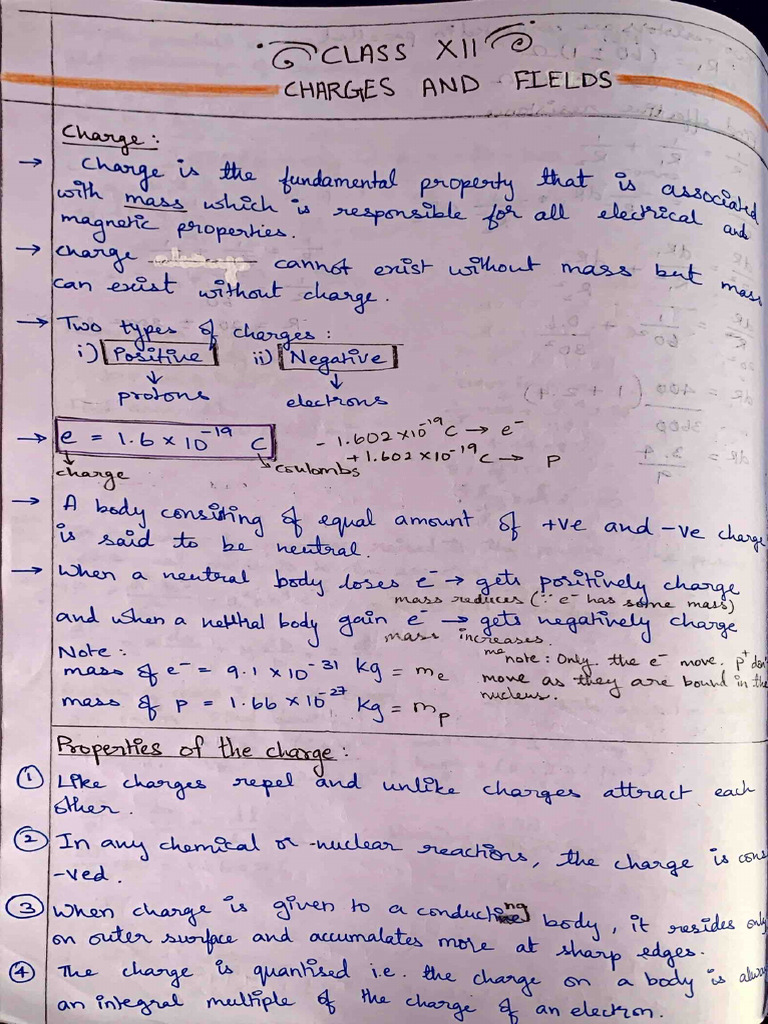 CLASS XII
CHARGES AND FIELDS
Charge :
→ Charge is the fundamental property that is associated
with mass which is responsible for all electrical and
magnetic properties.
→ Charge cannot exist without mass but mass
can exist without charge.
→ Two types of charges :
i) Positive ii) Negative
↓ ↓
protons electrons
→ e = 1.6 × 10⁻¹⁹ C - 1.602 ×10⁻¹⁹C → e⁻
+ 1.602 ×10⁻¹⁹C → p
charge coulombs
→ A body consisting of equal amount of +ve and -ve charge
is said to be neutral.
→ When a neutral body loses e⁻ → gets positively charge
mass reduces (∵ e⁻ has some mass)
and when a neutral body gain e⁻ → gets negatively charge
mass increases.
Note :
mass of e⁻ = 9.1 × 10⁻³¹ kg = me
note : Only the e⁻ move. p⁺ don
move as they are bound in the
nucleus.
mass of p = 1.66 × 10⁻²⁷ kg = mp
Properties of the charge :
① Like charges repel and unlike charges attract each
other.
② In any chemical or nuclear reactions, the charge is cons
-ved.
③ When charge is given to a conducting body, it resides only
on outer surface and accumalates more at sharp edges.
④ The charge is quantised i.e. the charge on a body is alwa
an integral multiple of the charge of an electron.